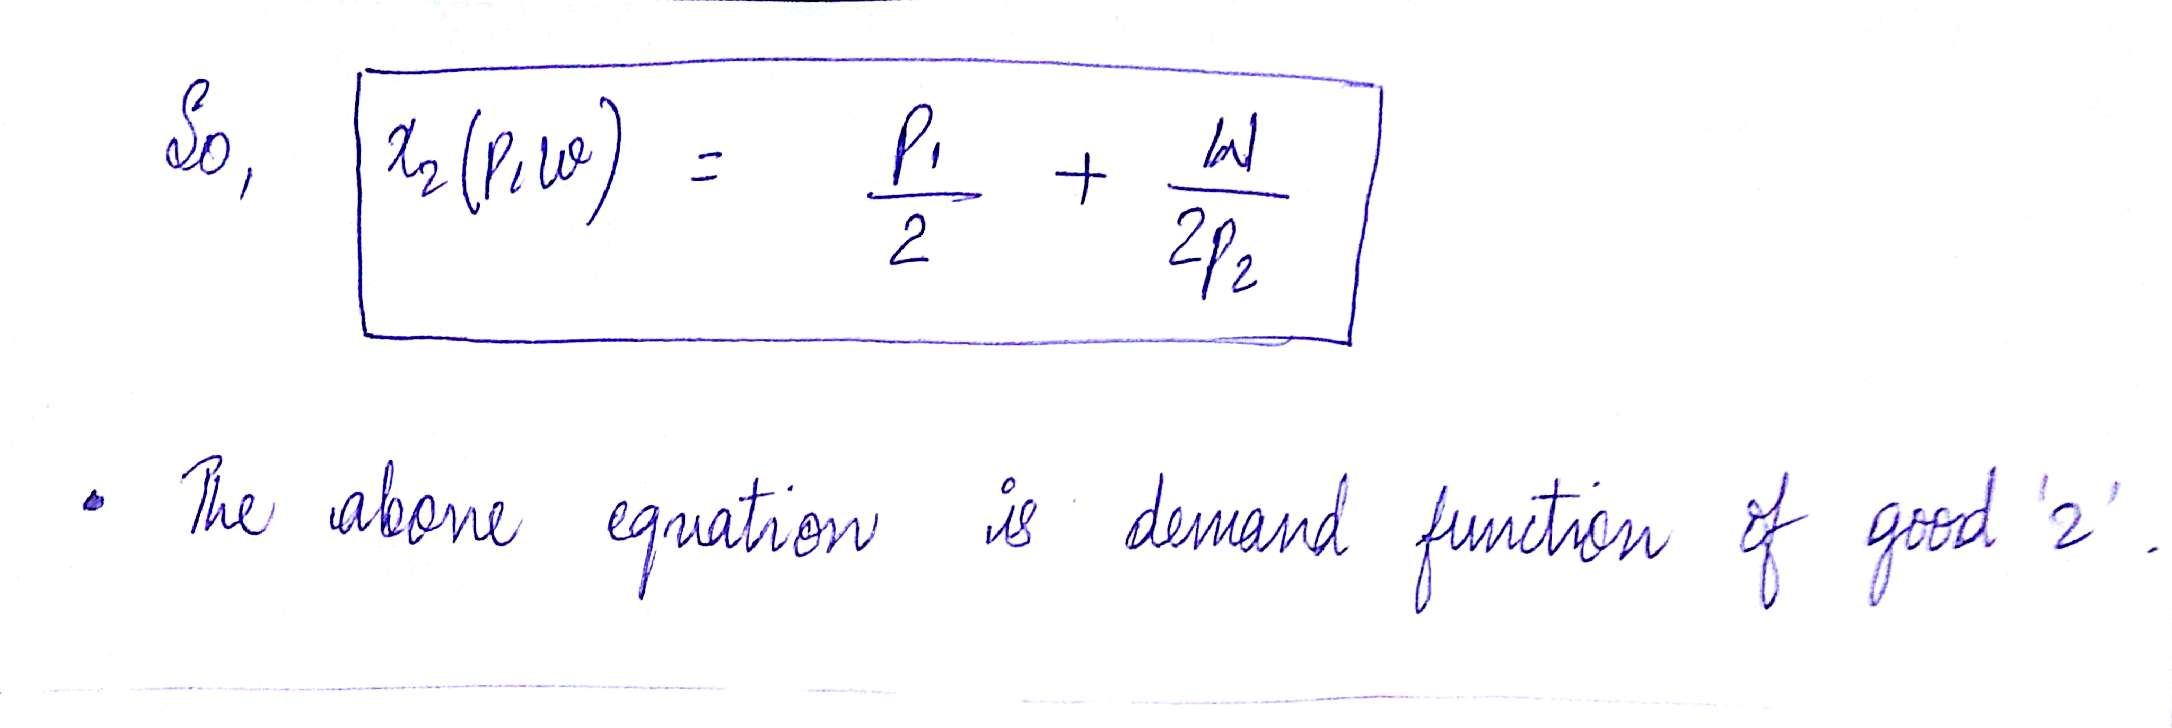 So, x₂(p,w) = P₁/2 + W/2P₂
• The above equation is demand function of good '2'.